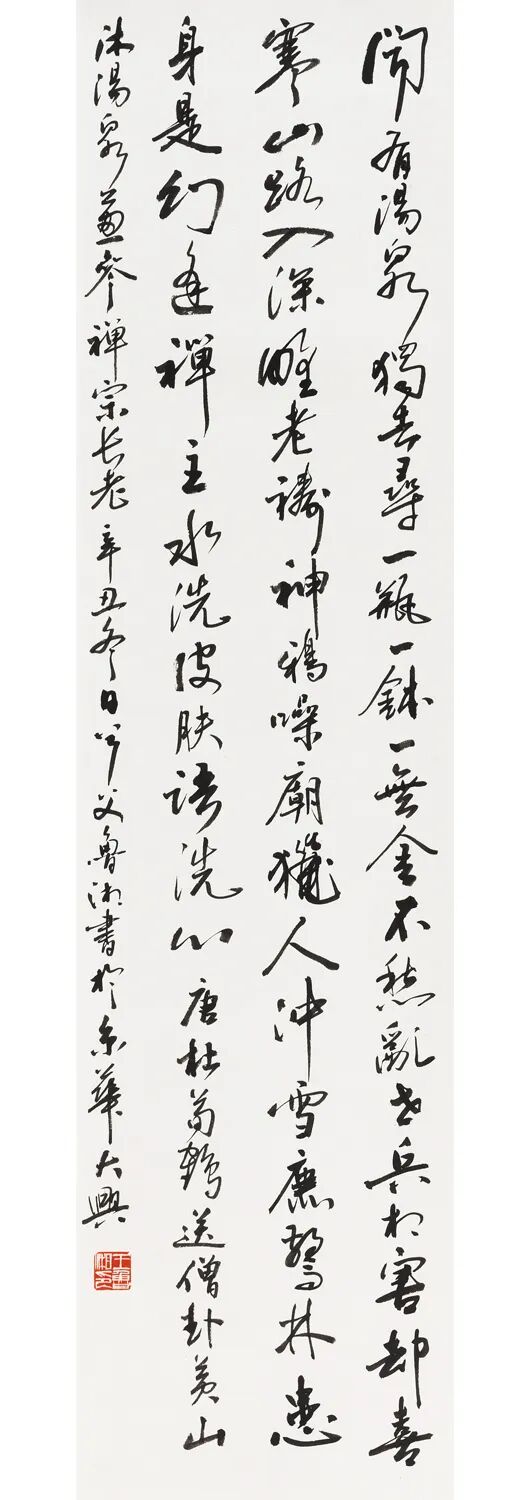 聞有湯泉獨去尋一瓶一鉢一無金不愁亂世兵相害却喜
寒山路入深野老禱神鴉噪廟獵人沖雪鹿驚林患
身是幻逢禪主水洗皮肤語洗心唐杜荀鶴送僧赴黄山
沐湯泉兼參禪宗长老辛丑冬日父魯湘書於京華大興
王魯湘印